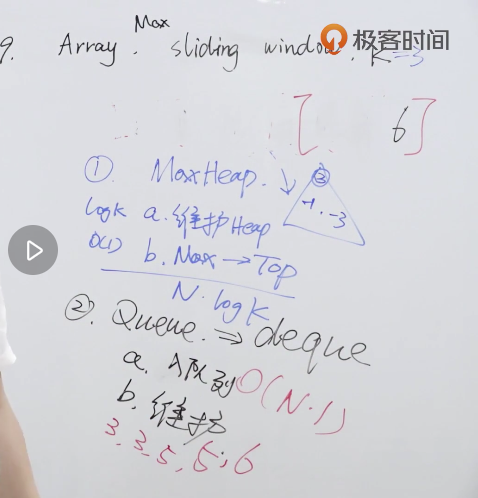 9. Array. Max sliding window. K=3
极客时间
[ 6]
①. MaxHeap.
③
-1, -3
logK a. 维护Heap
O(1) b. Max → Top
N·logK
②. Queue. ⇒ deque
a. 入队列 O(N·1)
b. 维护
3, 3, 5, 5, 6